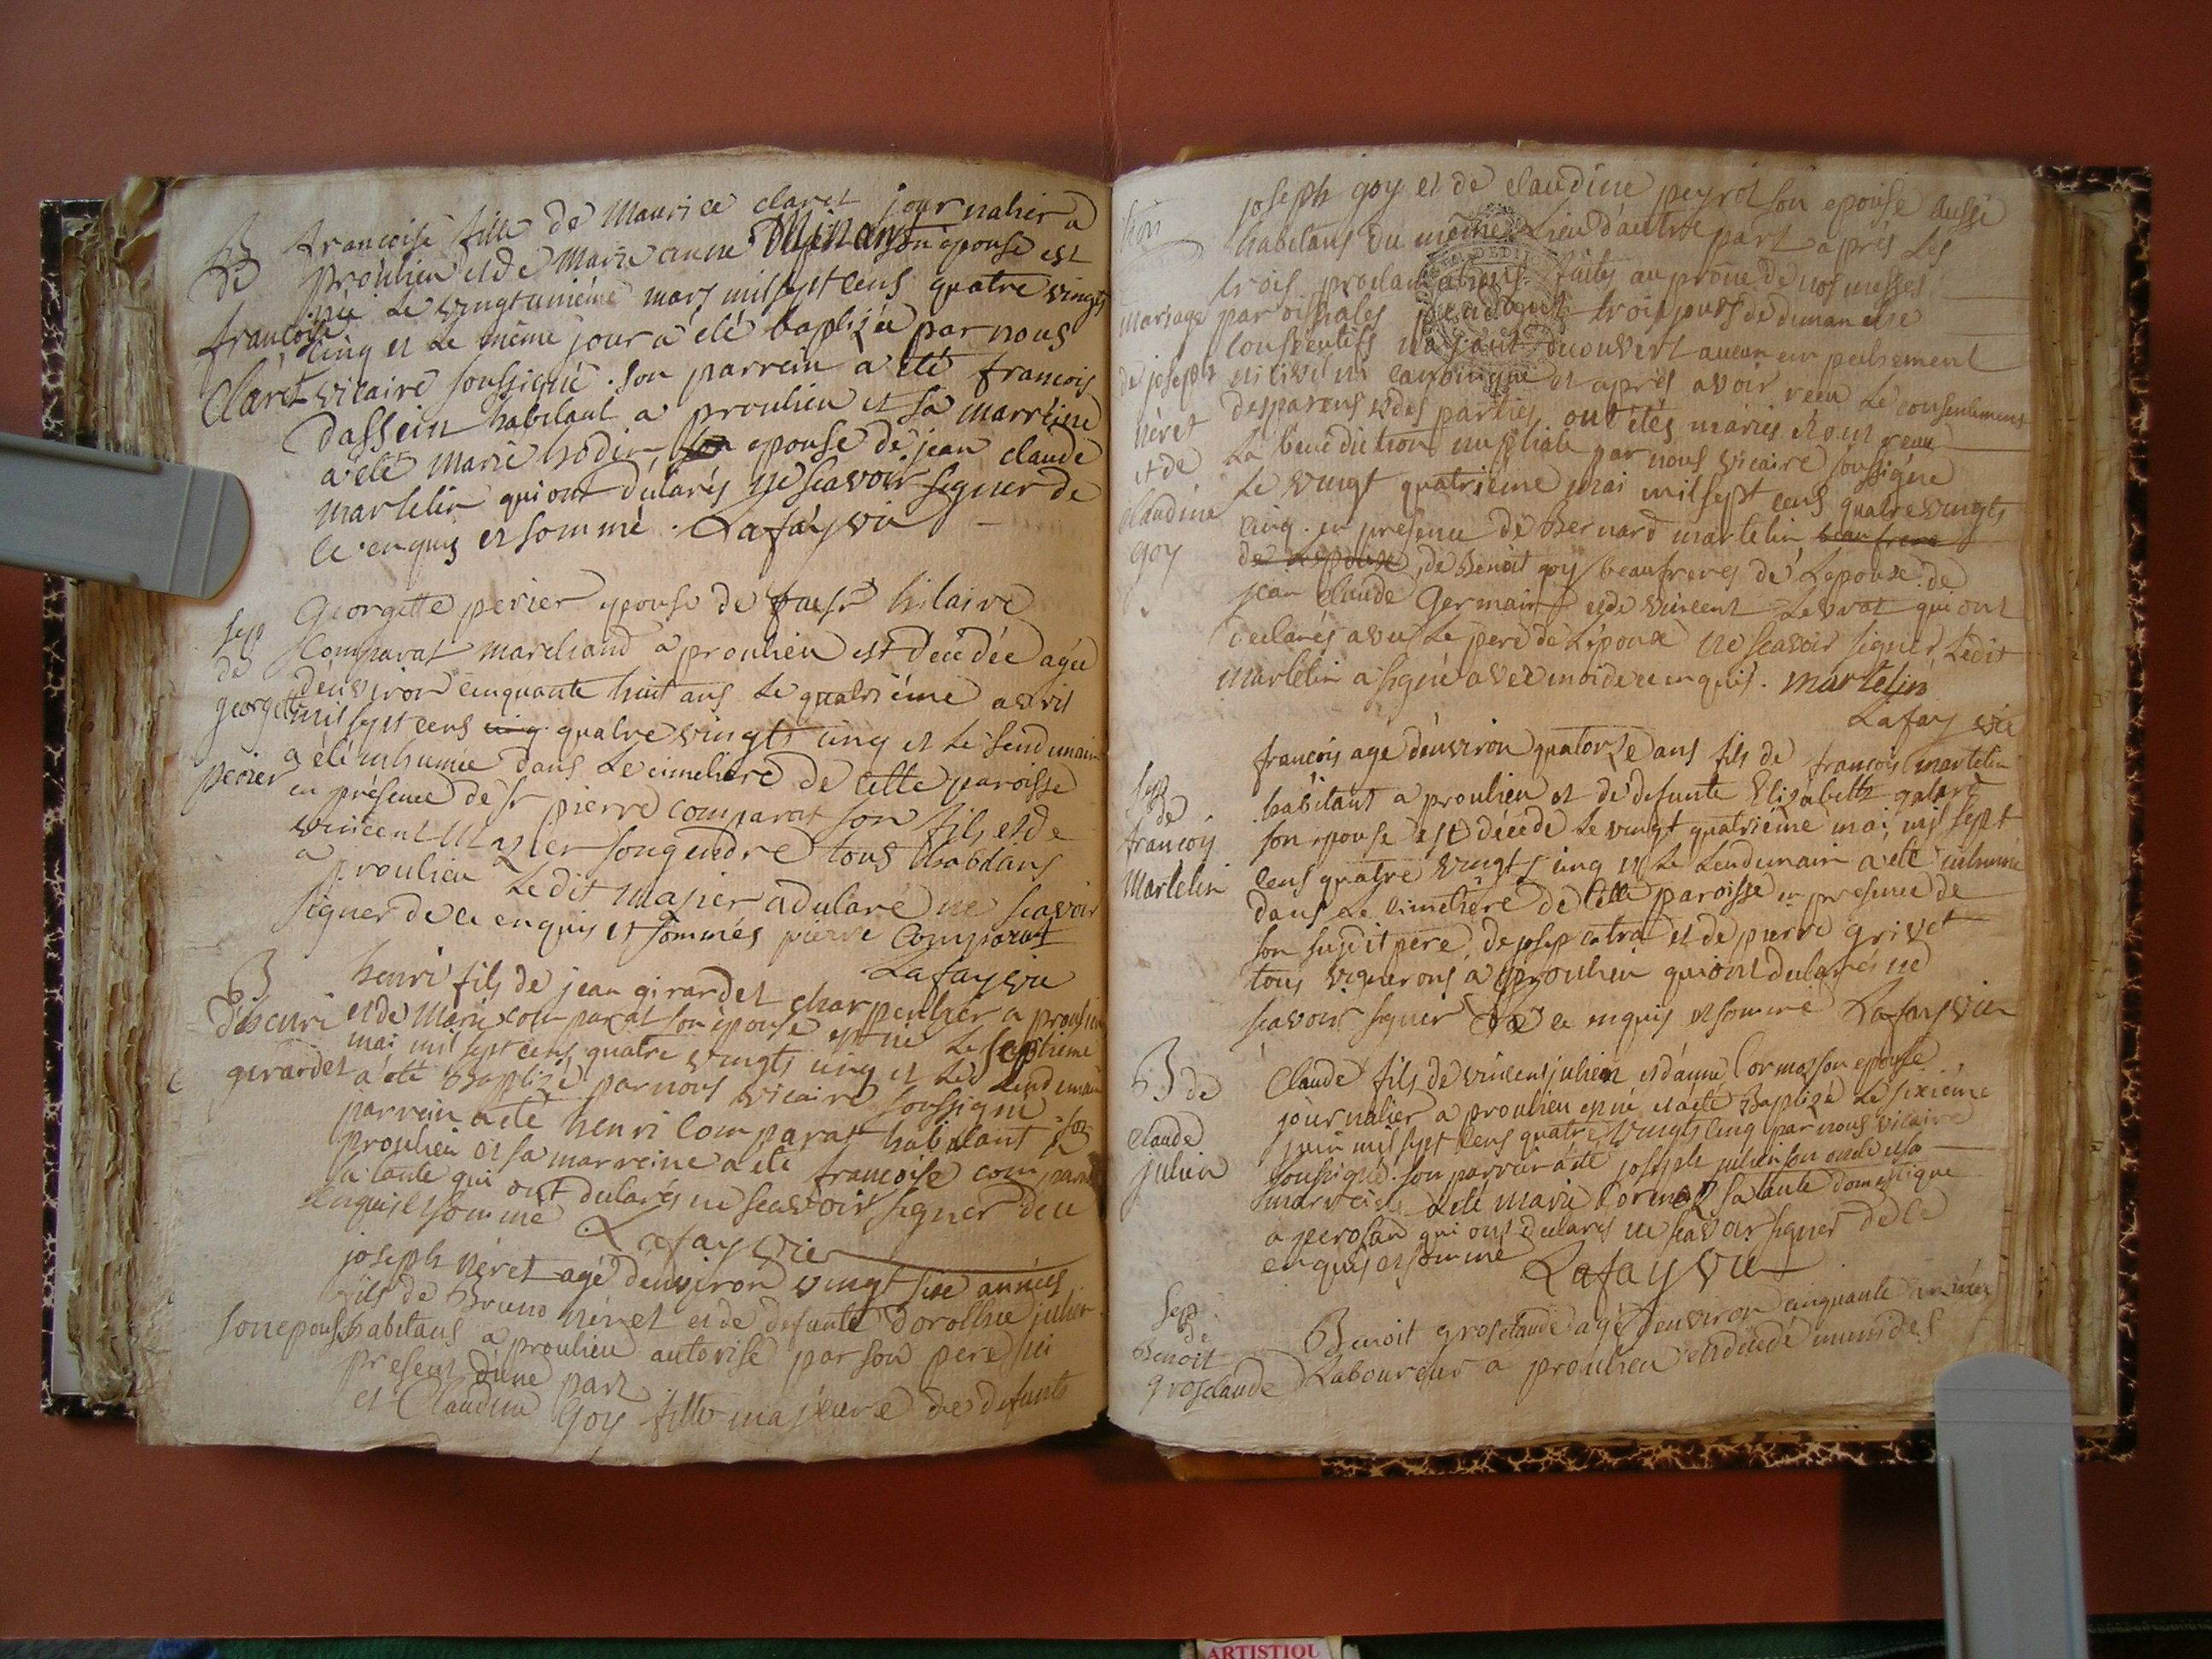 B
de
francoise
Claret
francoise fille de Maurice claret journalier a
proulieu et de Marie anne Minant son epouse est
née le vingt unième mars mil sept cens quatre vingts
cinq et le même jour a été baptizée par nous
vicaire soussigné. son parrein a été francois
dassein habitant a proulieu et sa marreine
a été Marie bodin epouse de jean claude
martelin qui ont declarés ne scavoir signer de
ce enquis et sommé. Lafay vic
sep
de
georgette
perier
Georgette perier epouse de hilaire
Comparat marchand a proulieu est décédée agée
denviron cinquante huit ans le quatrième avril
mil sept cens cinq quatre vingts cinq et le lendemain
a été inhumée dans le cimetiere de cette paroisse
en présence de sr pierre comparat son fils et de
vincent Mazier son gendre tous habitans
a proulieu Ledit mazier a declaré ne scavoir
signer de ce enquis et sommés pierre Comparat
Lafay vic
B
d'henri
girardet
henri fils de jean girardet charpentier a proulieu
et de Marie comparat son épouse est né le septieme
mai mil sept cens quatre vingts cinq et le lendemain
a été Baptizé par nous vicaire soussigné son
parrein a été henri Comparat habitant a
proulieu et sa marreine a été francoise comparat
sa tante qui ont declarés ne scavoir signer de ce
enquis et sommé Lafay vic
joseph néret agé denviron vingt six années
fils de Bruno néret et de defunte dorothée julien
son epouse habitans a proulieu autorisé par son pere ici
present dune part
et Claudine Goy fille majeure de defunts
mariage
de joseph
néret
et de
claudine
goy
joseph goy et de claudine peyrot son epouse aussi
habitans du même Lieu d'autre part après les
trois proclamations faites au prône de nos messes
paroissiales pendant trois jours de dimanche
consecutifs n'ayant decouvert aucun empechement
ni civil ni canonique et après avoir receu le consentement
des parens et des parties, ont étés mariés et ont receu
La benediction nuptiale par nous vicaire soussigné
Le vingt quatrième mai mil sept cens quatre vingts
cinq. en presence de Bernard martelin beaufrere
de lepouse, de Benoit goy beaufreres de Lepouse. de
jean Claude Germain et de vincent Levrat qui ont
declarés avec Le pere de Lepoux ne scavoir signer, Ledit
martelin a signé avec moi de ce enquis. martelin
Lafay vic
sep
de
francois
Martelin
francois age denviron quatorze ans fils de francois martelin
habitant a proulieu et de defunte Elisabeth
son epouse est décédé le vingt quatrième mai mil sept
cens quatre vingts cinq et Le Lendemain a été inhumé
dans Le cimetiere de cette paroisse en presence de
son susdit pere, de josep et de pierre grivet
tous vignerons a proulieu qui ont declarés ne
scavoir signer de ce enquis et sommé Lafay vic
B de
claude
julien
Claude fils de vincent julien et d'anne Cormoz son epouse
journalier a proulieu est né et a été Baptizé Le sixième
juin mil sept cens quatre vingts cinq par nous vicaire
soussigné. son parrein a été joseph julien son oncle et sa
marreine a été marie Cormoz sa tante domestique
a perosan qui ont declarés ne scavoir signer de ce
enquis et sommé Lafay vic
sep
de
Benoit
grosclaude
Benoit grosclaude agé denviron cinquante années
Laboureur a proulieu est décédé muni des
ARTISTIQU